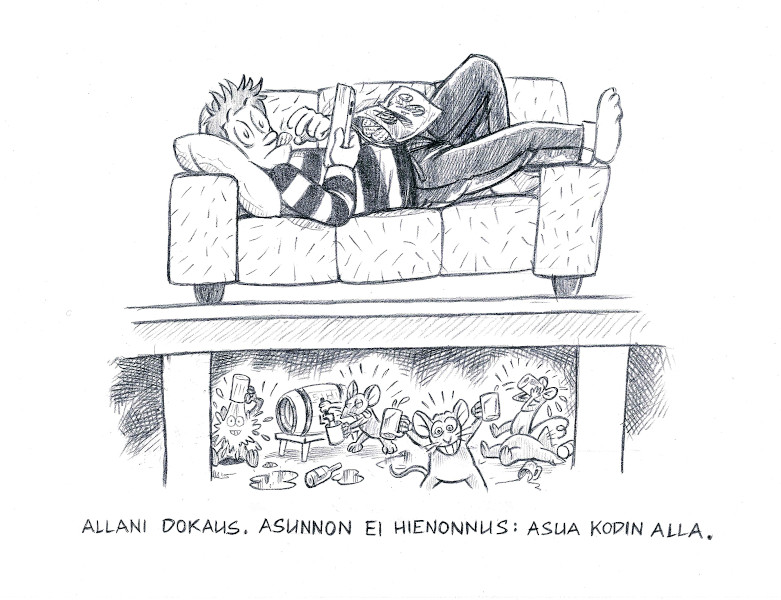 ALLANI DOKAUS. ASUNNON EI HIENONNUS: ASUA KODIN ALLA.